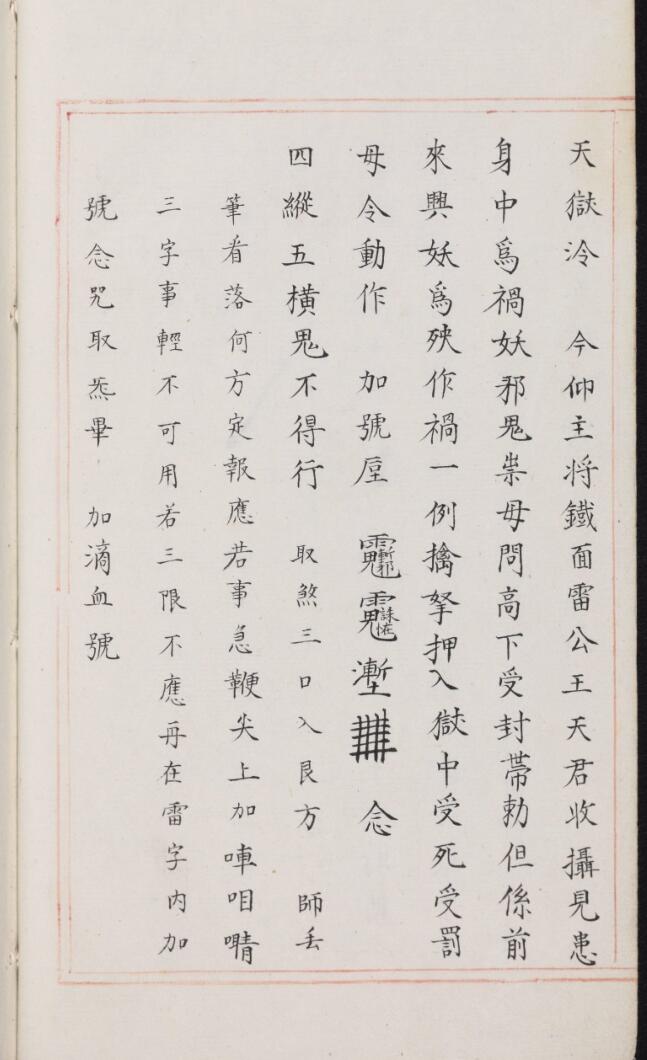 天獄泠　今仰主将鐵面雷公王天君收攝見患
身中爲禍妖邪鬼祟毋問高下受封帶勅但係前
來興妖爲殃作禍一例擒拏押入獄中受死受罰
毋令動作　加號　念
四縱五横鬼不得行　取煞三口入艮方　師丢
筆看落何方定報應若事急鞭尖上加㖠咱啨
三字事輕不可用若三限不應再在雷字内加
號念咒取炁畢　加滴血號